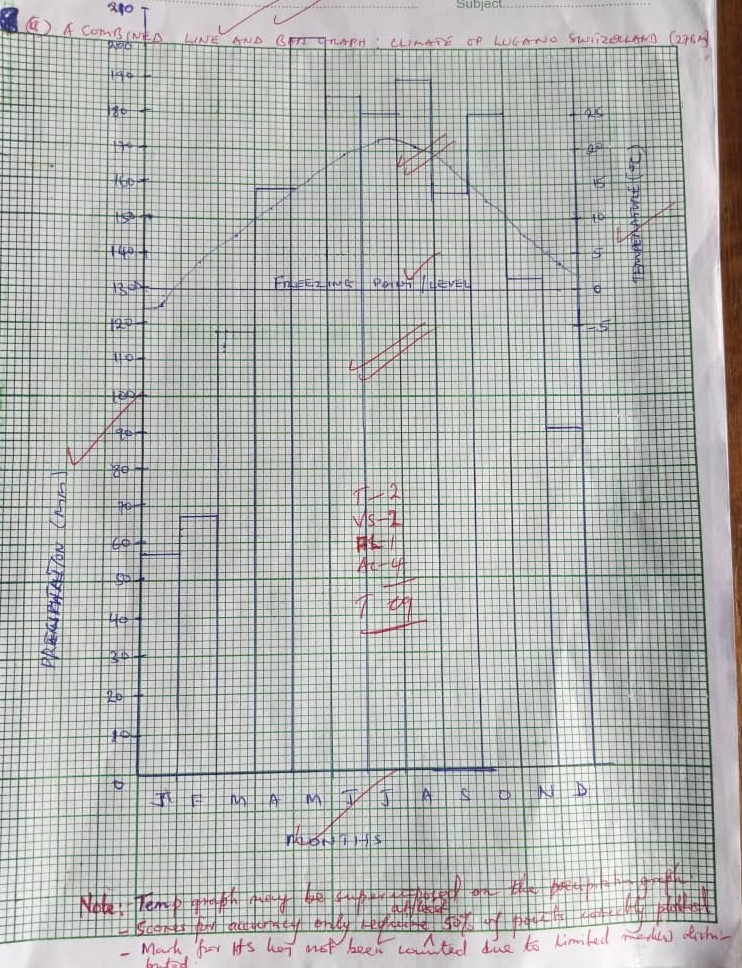 Subject
210
(a) A COMBINED LINE AND BAR GRAPH: CLIMATE OF LUGANO SWITZERLAND (276M)
200
190
180 25
170 20
160 15
150 10
140 5
130 FREEZING POINT/LEVEL 0
120 -5
110
100
90
80
70
60
50
40
30
20
10
0
TEMPERATURE (°C)
PRECIPITATION (Mm)
T - 2
VS - 2
- 1
Ac - 4
T 09
J F M A M J J A S O N D
MONTHS
Note: Temp graph may be superimposed on the precipitation graph.
- Scores for accuracy only require 50% of points correctly plotted
- Mark for HS has not been counted due to limited marks distri-
buted